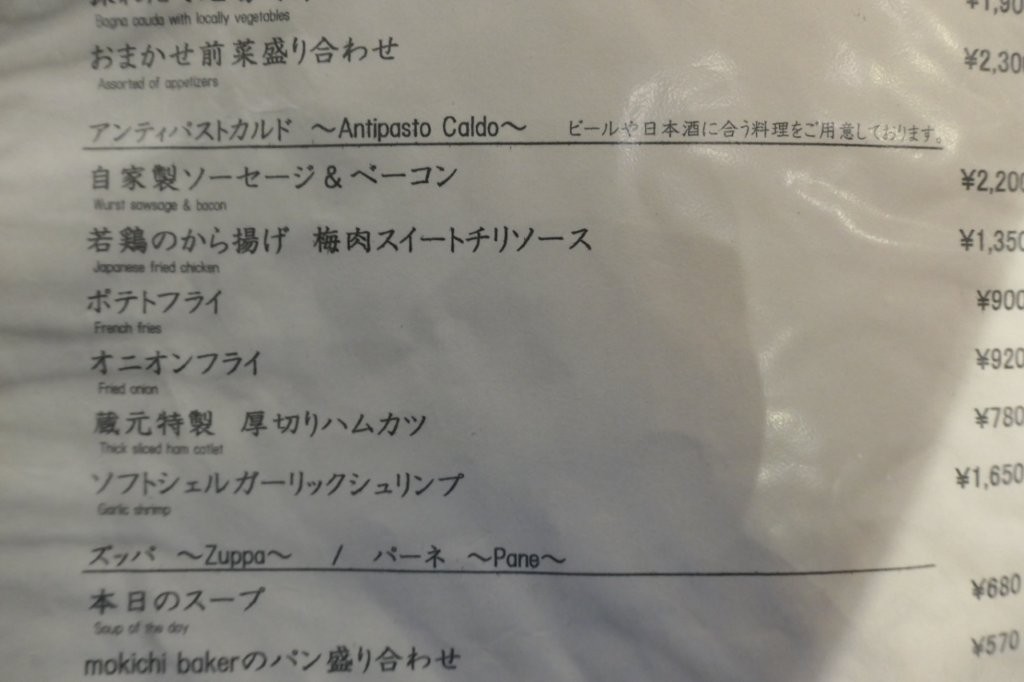 Bagna cauda with locally vegetables
¥1,90
おまかせ前菜盛り合わせ ¥2,300
Assorted of appetizers
アンティパストカルド ～Antipasto Caldo～ ビールや日本酒に合う料理をご用意しております。
自家製ソーセージ＆ベーコン ¥2,200
Wurst sawsage & bacon
若鶏のから揚げ 梅肉スイートチリソース ¥1,350
Japanese fried chicken
ポテトフライ ¥900
French fries
オニオンフライ ¥920
Fried onion
蔵元特製 厚切りハムカツ ¥780
Thick sliced ham cutlet
ソフトシェルガーリックシュリンプ ¥1,650
Garlic shrimp
ズッパ ～Zuppa～ / パーネ ～Pane～
本日のスープ ¥680
Soup of the day
mokichi bakerのパン盛り合わせ ¥570